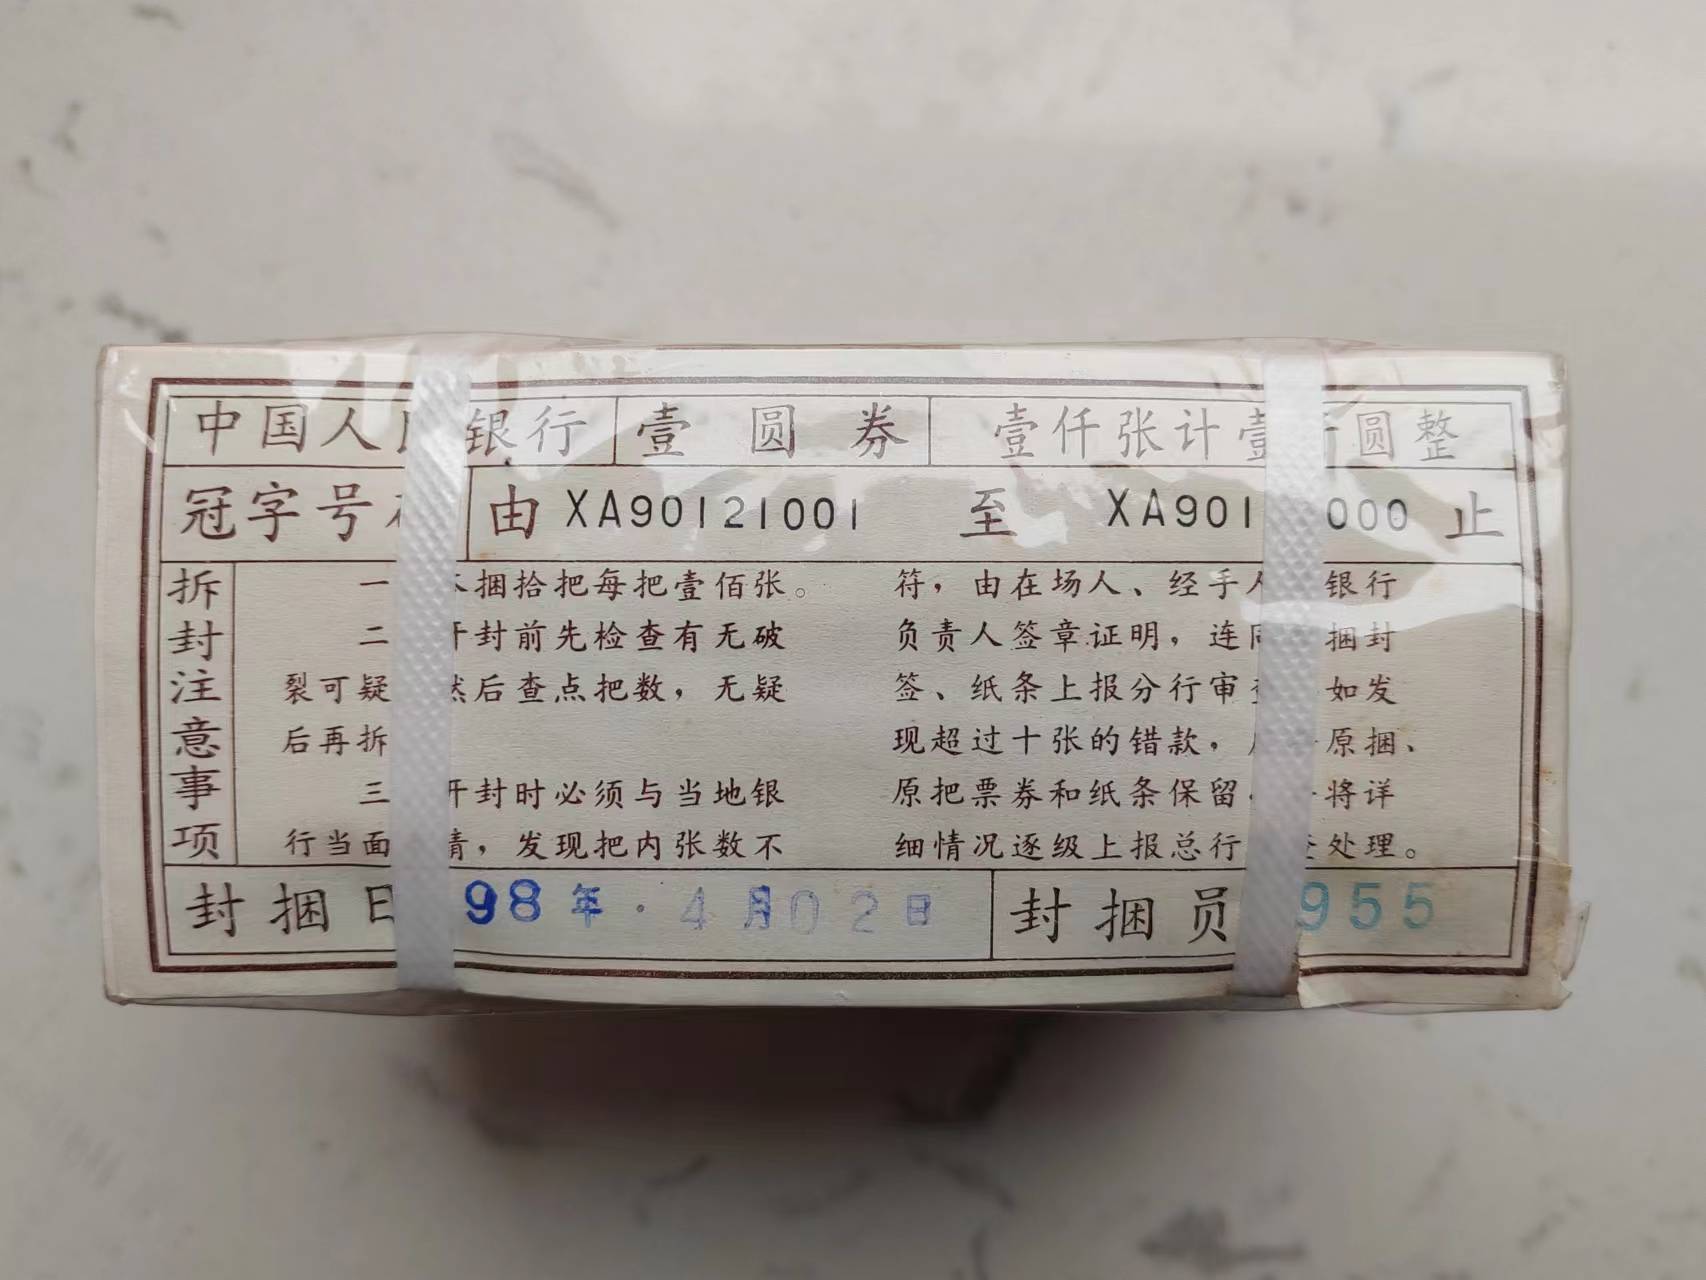 中国人民银行 壹圆券 壹仟张计壹仟圆整
冠字号码 由 XA90121001 至 XA901 000 止
拆封注意事项
一 本捆拾把每把壹佰张。
二 开封前先检查有无破
裂可疑 然后查点把数，无疑
后再拆
三 开封时必须与当地银
行当面 清，发现把内张数不
符，由在场人、经手人 银行
负责人签章证明，连同 捆封
签、纸条上报分行审查 如发
现超过十张的错款， 原捆、
原把票券和纸条保留 将详
细情况逐级上报总行 查处理。
封捆日 98年·4月02日 封捆员 955